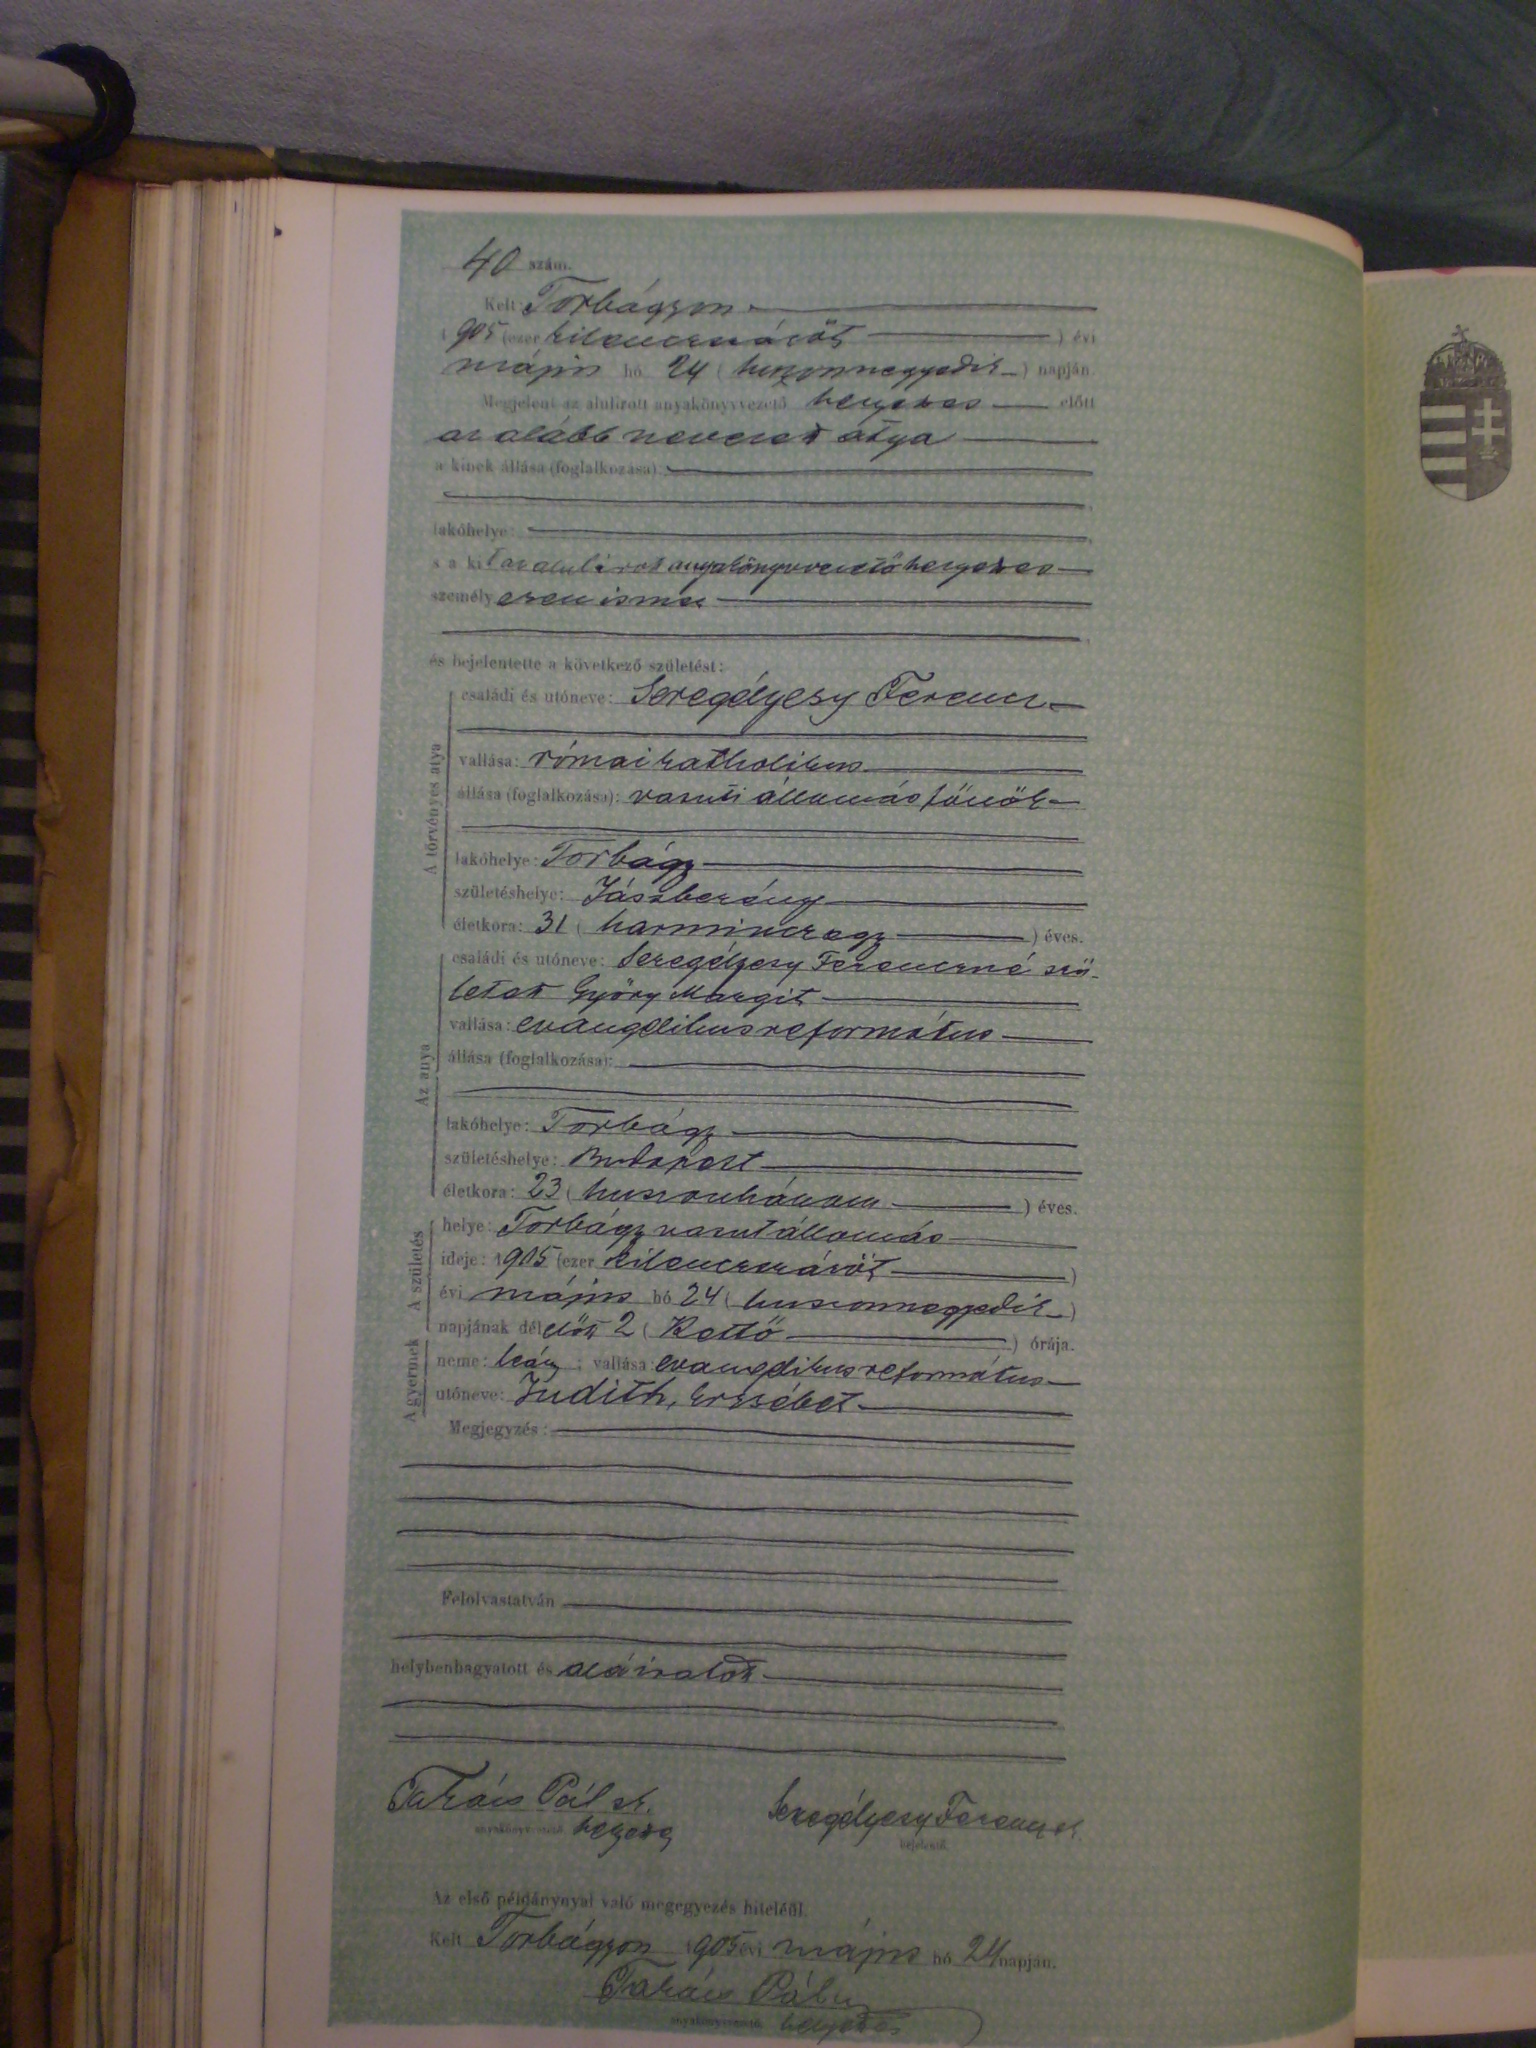 40 szám.
Kelt Torbágyon
1905 (ezer kilenczszázöt) évi
május hó 24 (huszonnegyedik) napján.
Megjelent az alulirott anyakönyvvezető helyettes előtt
az alább nevezett átya
a kinek állása (foglalkozása):
lakóhelye:
s a kit az alulírott anyakönyvvezető helyettes
személyesen ismer
és bejelentette a következő születést:
A törvényes atya
családi és utóneve: Seregélyesy Ferencz
vallása: római katholikus
állása (foglalkozása): vasuti állomás főnök
lakóhelye: Torbágy
születéshelye: Jászberény
életkora: 31 (harminczegy) éves.
Az anya
családi és utóneve: Seregélyesy Ferenczné szü-
letett Győry Margit
vallása: evangélikus református
állása (foglalkozása):
lakóhelye: Torbágy
születéshelye: Budapest
életkora: 23 (huszonhárom) éves.
A születés
helye: Torbágy vasutállomás
ideje: 1905 (ezer kilenczszázöt)
évi május hó 24 (huszonnegyedik)
napjának délelőtt 2 (Kettő) órája.
A gyermek
neme: leány; vallása: evangélikus református
utóneve: Judith, Erzsébet
Megjegyzés:
Felolvastatván
helybenhagyatott és aláiratott
Takács Pál sk. Seregélyesy Ferencz sk.
anyakönyvvezető helyettes bejelentő.
Az első példánynyal való megegyezés hiteléül.
Kelt Torbágyon 1905 évi május hó 24 napján.
Takács Pál
anyakönyvvezető helyettes